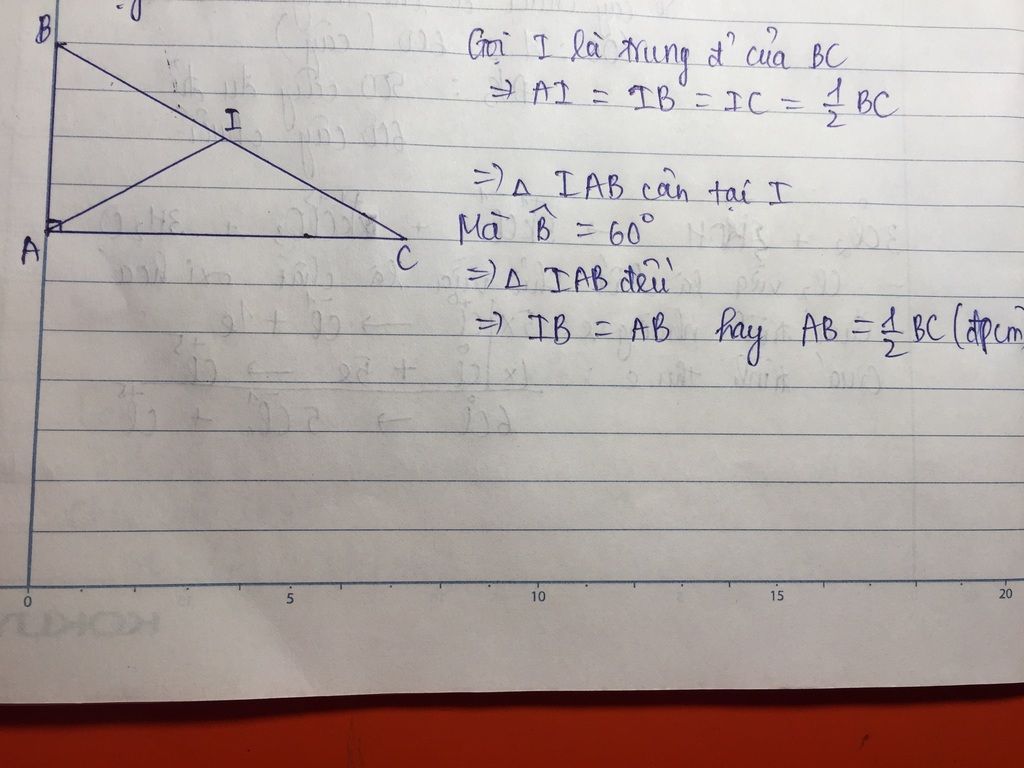 B
I
A
C
Gọi I là trung đ' của BC
=> AI = IB = IC = 1/2 BC
=> △ IAB cân tại I
Mà B̂ = 60°
=> △ IAB đều
=> IB = AB hay AB = 1/2 BC (đpcm)
0 5 10 15 20